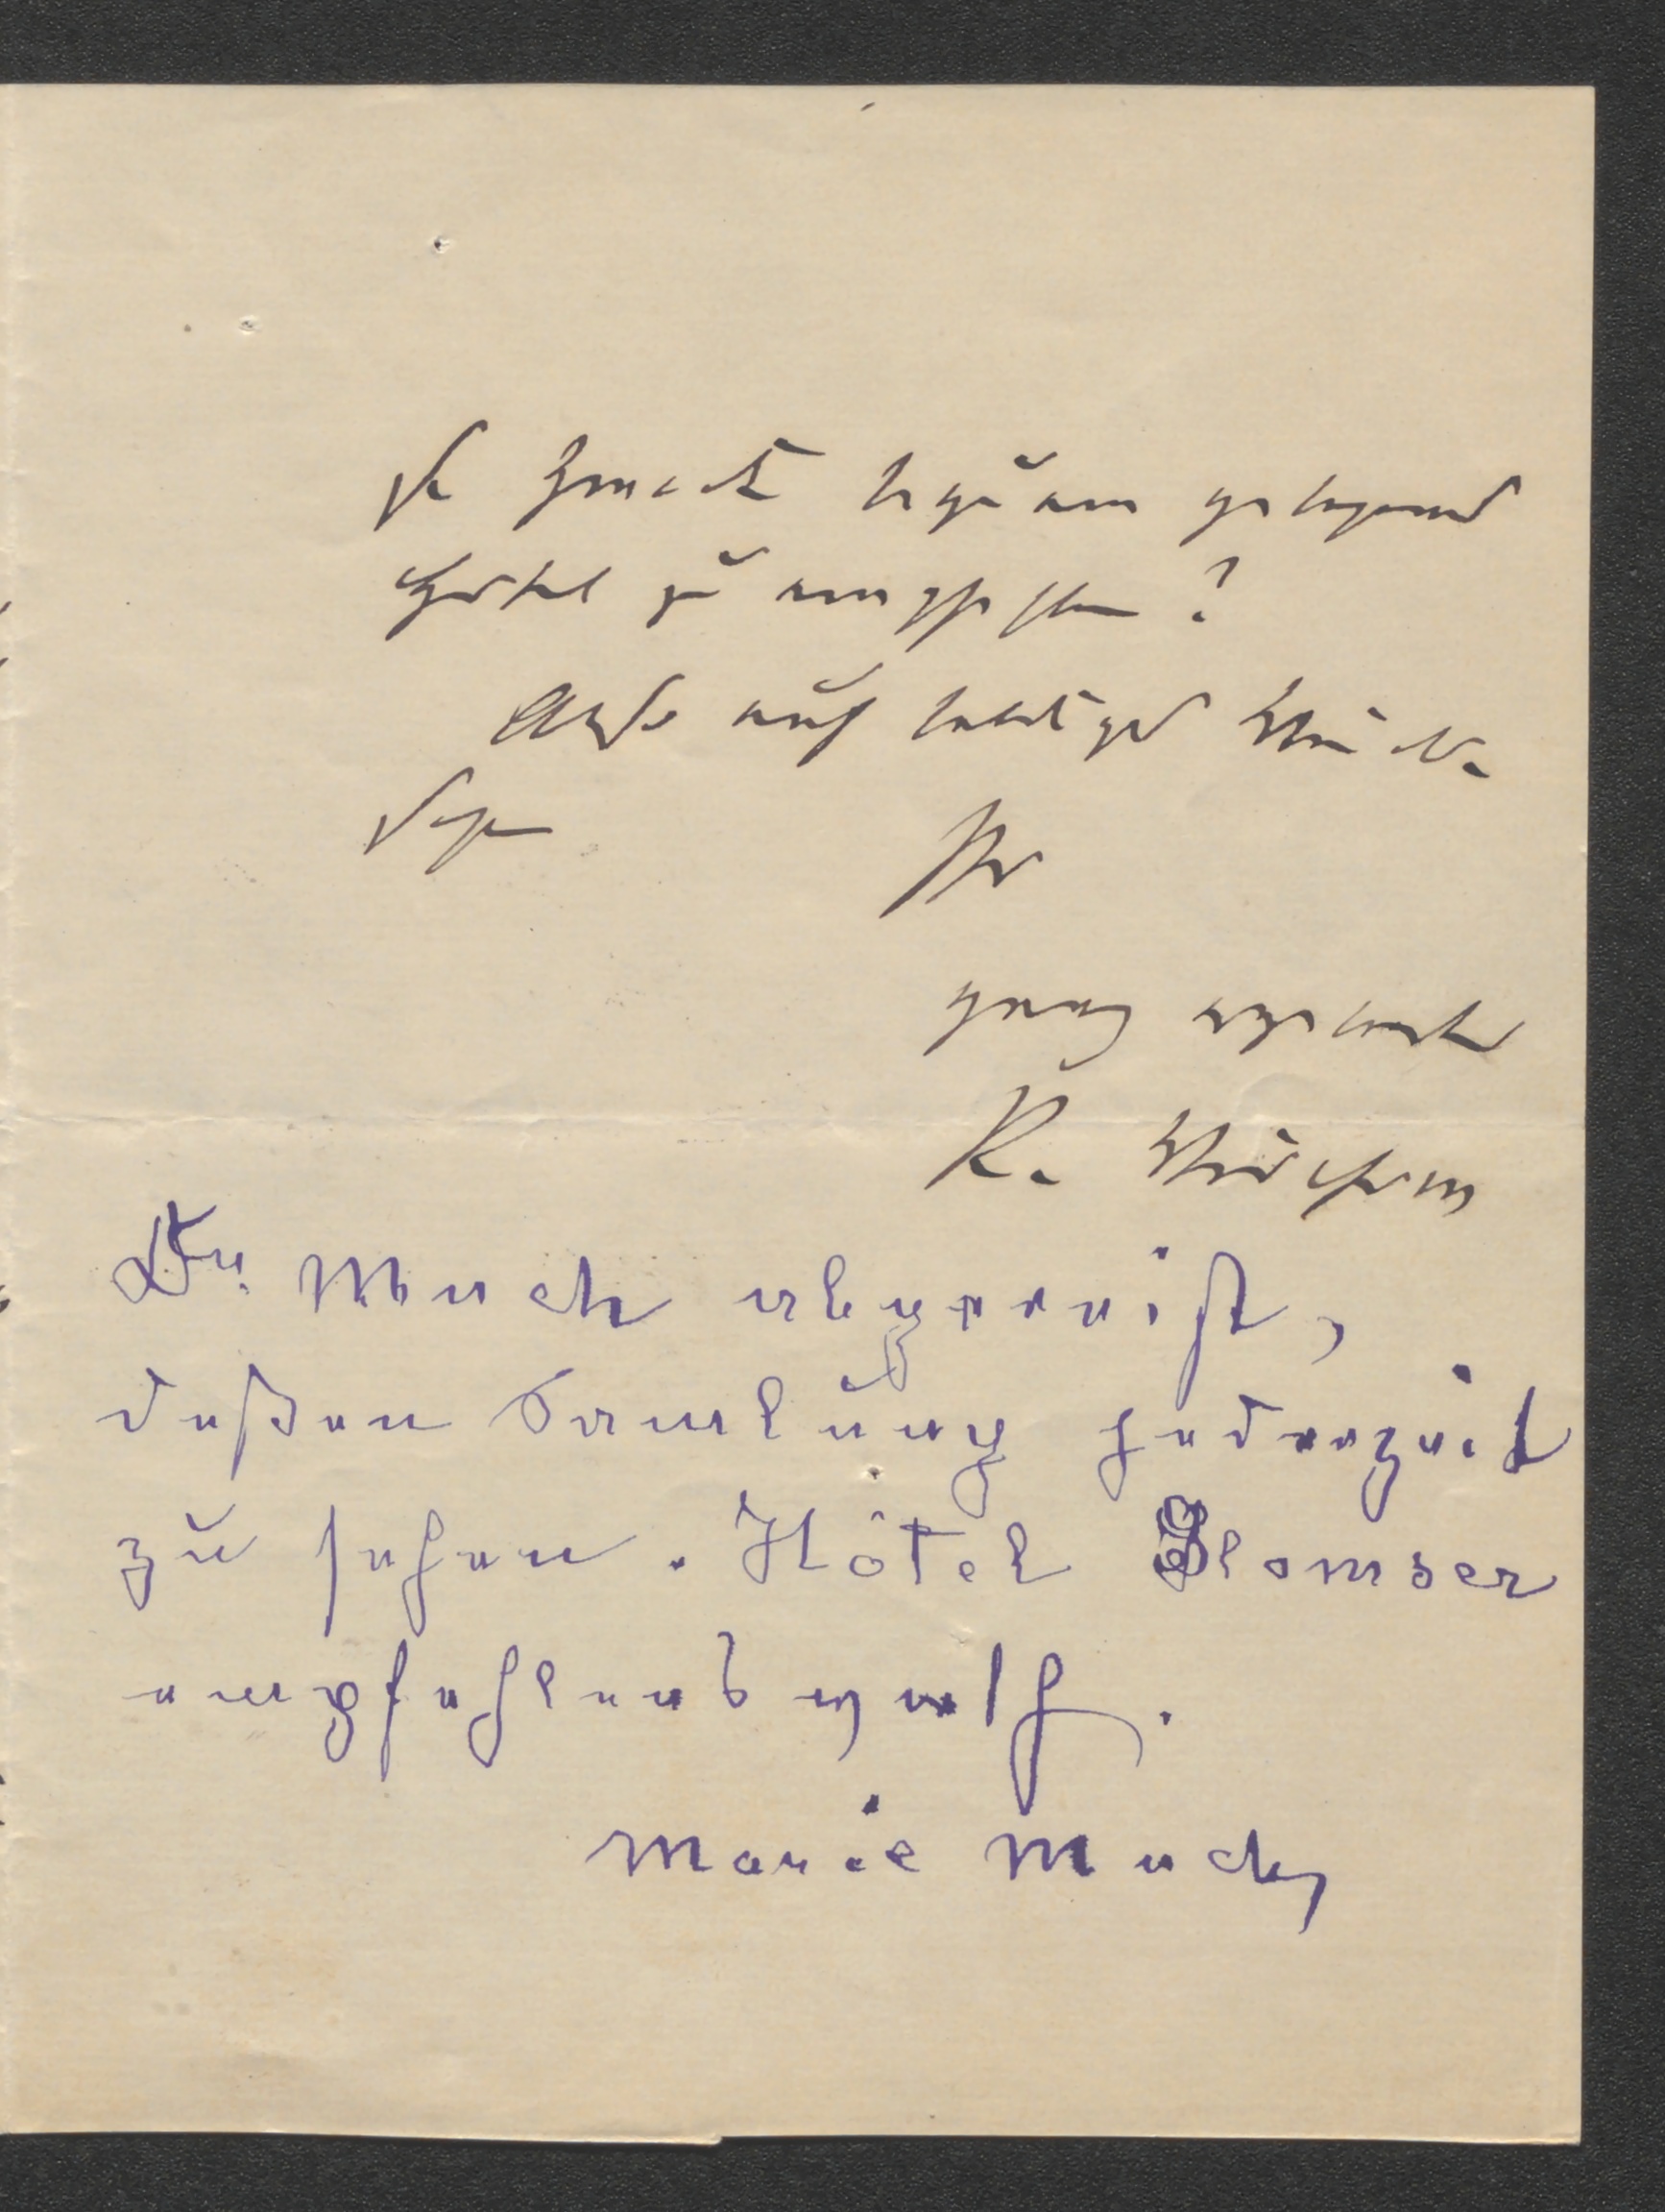 für Zwecke bequem gelegenes
Hôtel zu empfehlen?
Also auf baldiges Wieder-
sehen
Ihr
ganz ergebenster
R. Virchow
Dr. Much abgereist,
deßen Samlung jederzeit
zu sehen. Hôtel Klomser
empfehlenswerth.
Marie Much